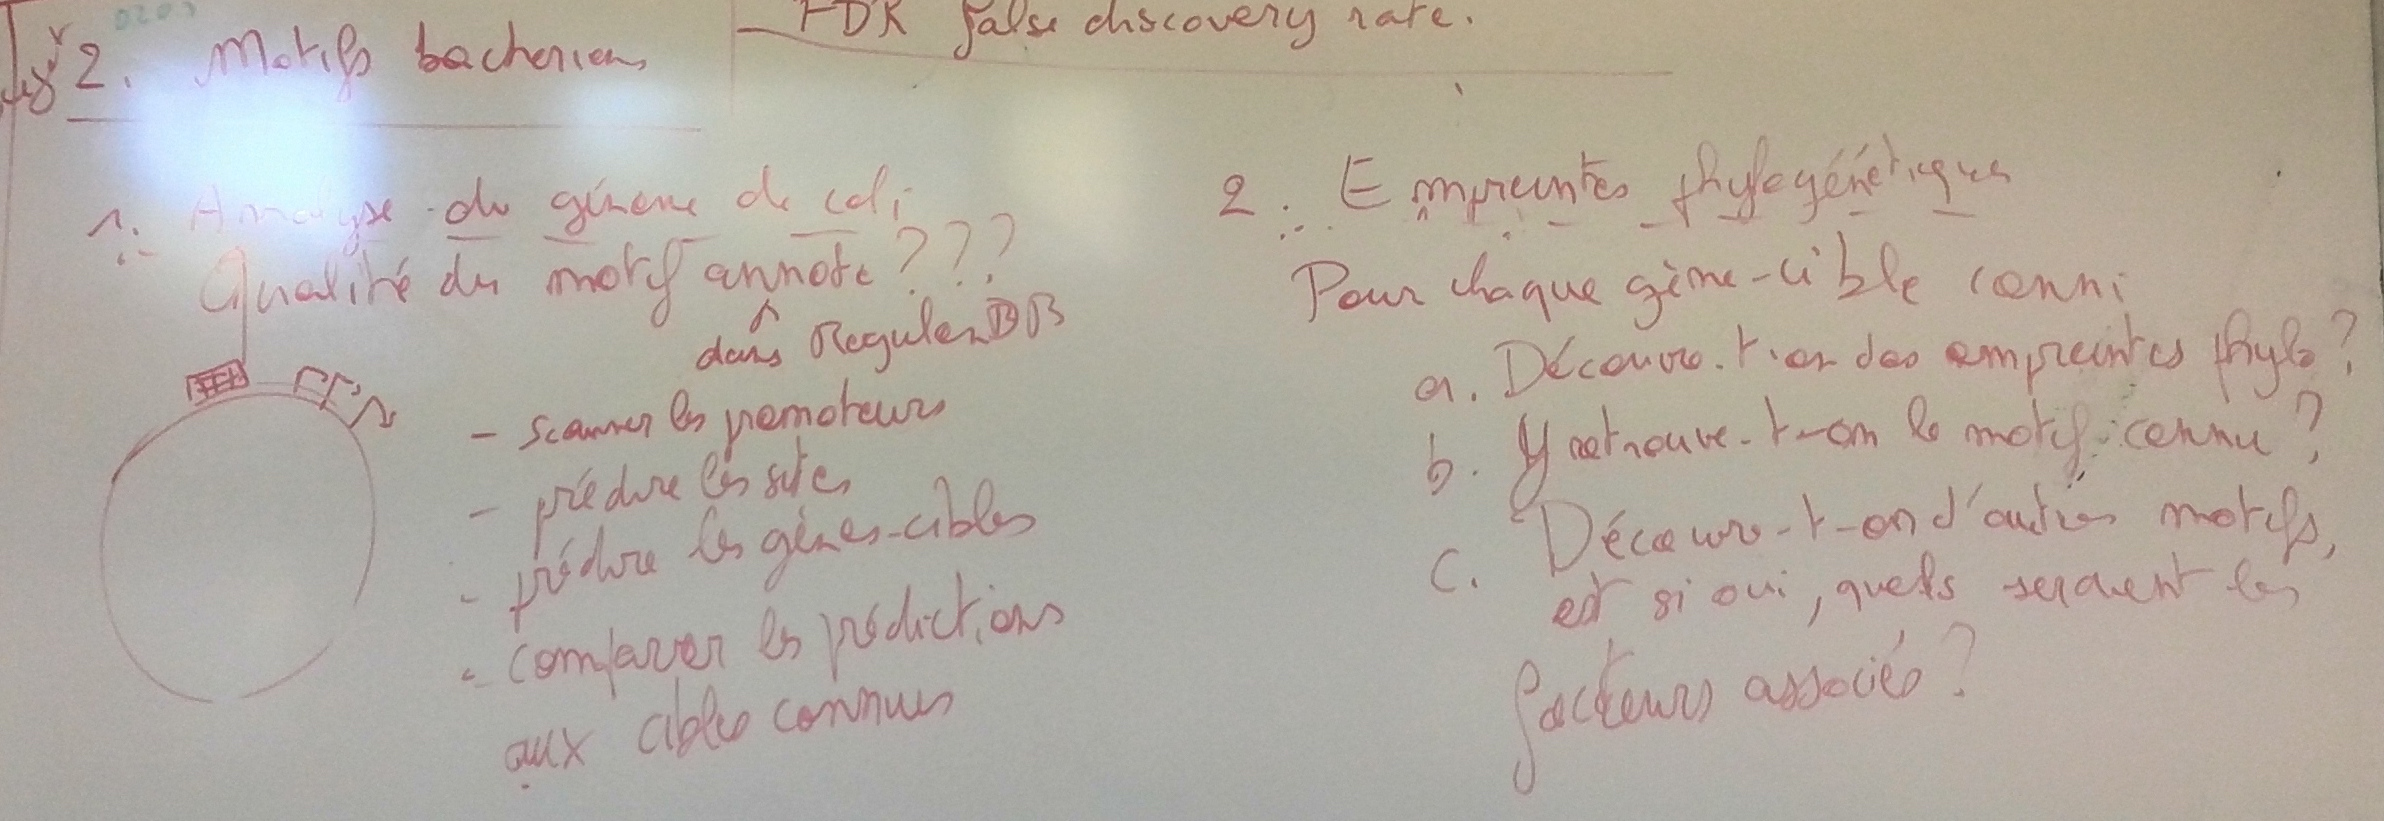 2. Motifs bacteriens
- FDR false discovery rate.
1. Analyse du génome de coli
Qualité du motif annoté ???
dans RegulonDB
- scanner les promoteurs
- prédire les sites
- prédire les gènes-cibles
- comparer les prédictions
aux cibles connues
2. Empreintes phylogénétiques
Pour chaque gène-cible connu
a. Découvre-t-on des empreintes phylo?
b. Y retrouve-t-on le motif connu?
c. Découvre-t-on d'autres motifs,
et si oui, quels seraient les
facteurs associés?